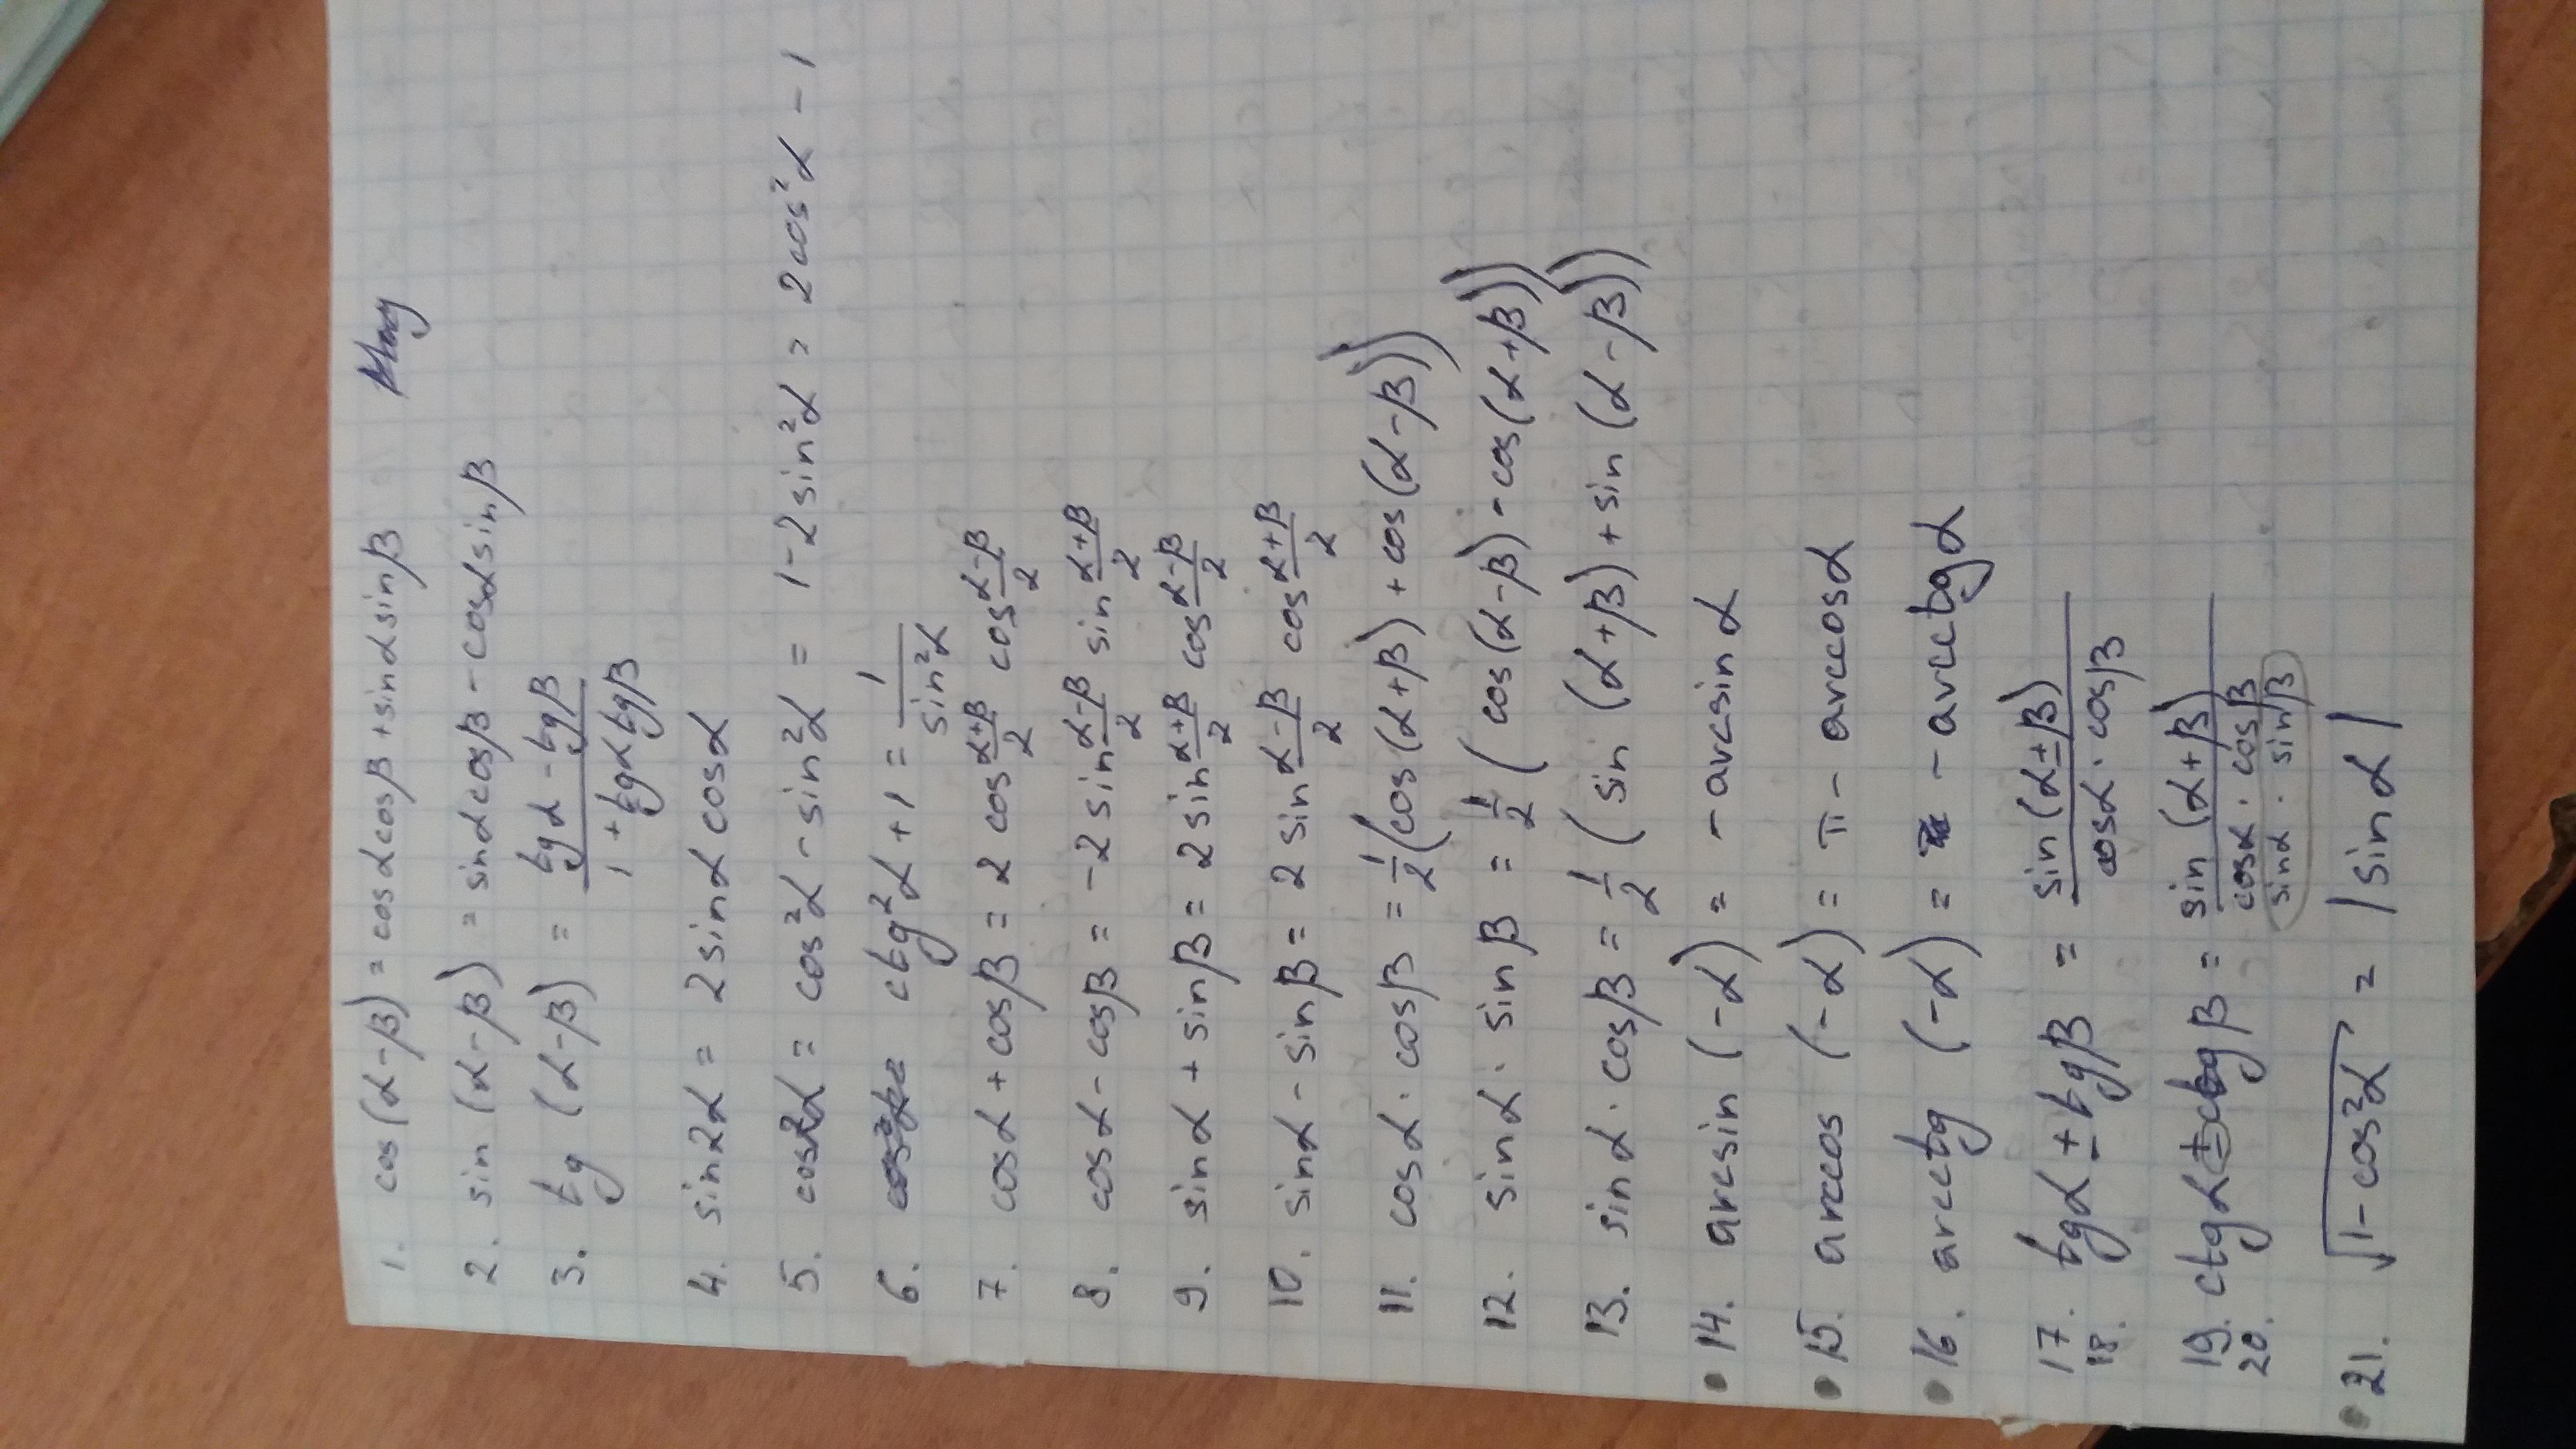 1. cos(α-β) = cosαcosβ+sinαsinβ
2. sin(α-β) = sinαcosβ-cosαsinβ
3. tg(α-β) = (tgα-tgβ)/(1+tgαtgβ)
4. sin2α = 2sinαcosα
5. cos2α = cos²α-sin²α = 1-2sin²α = 2cos²α-1
6. ctg²α+1 = 1/sin²α
7. cosα+cosβ = 2cos (α+β)/2 cos (α-β)/2
8. cosα-cosβ = -2sin (α-β)/2 sin (α+β)/2
9. sinα+sinβ = 2sin (α+β)/2 cos (α-β)/2
10. sinα-sinβ = 2sin (α-β)/2 cos (α+β)/2
11. cosα·cosβ = 1/2(cos(α+β)+cos(α-β))
12. sinα·sinβ = 1/2(cos(α-β)-cos(α+β))
13. sinα·cosβ = 1/2(sin(α+β)+sin(α-β))
14. arcsin(-α) = -arcsinα
15. arccos(-α) = π-arccosα
16. arcctg(-α) = -arcctgα
17. 18. tgα±tgβ = sin(α±β)/(cosα·cosβ)
19. 20. ctgα±ctgβ = sin(α+β)/(cosα·cosβ)
sinα·sinβ
21. √(1-cos²α) = |sinα|